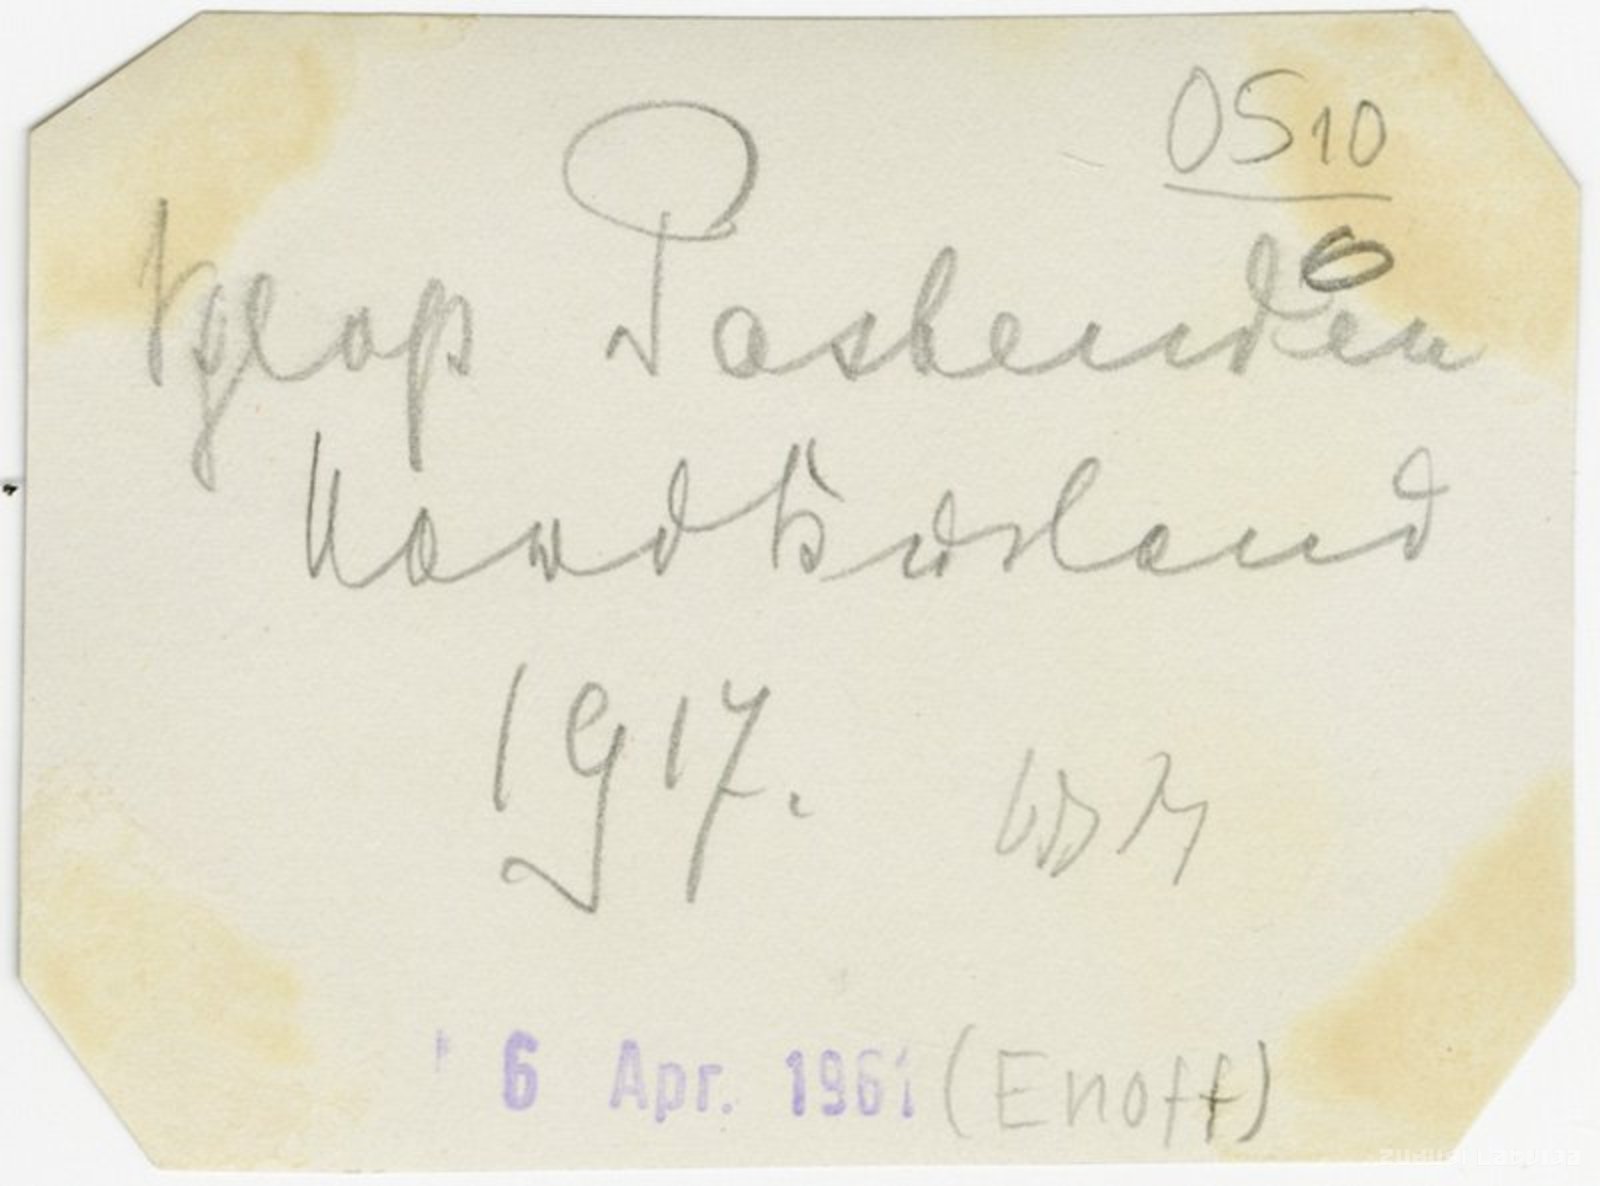 OS10
6
Schloss Postenden
Nordkurland
1917.
6 Apr. 1961 (Enoff)
Zudusī Latvija